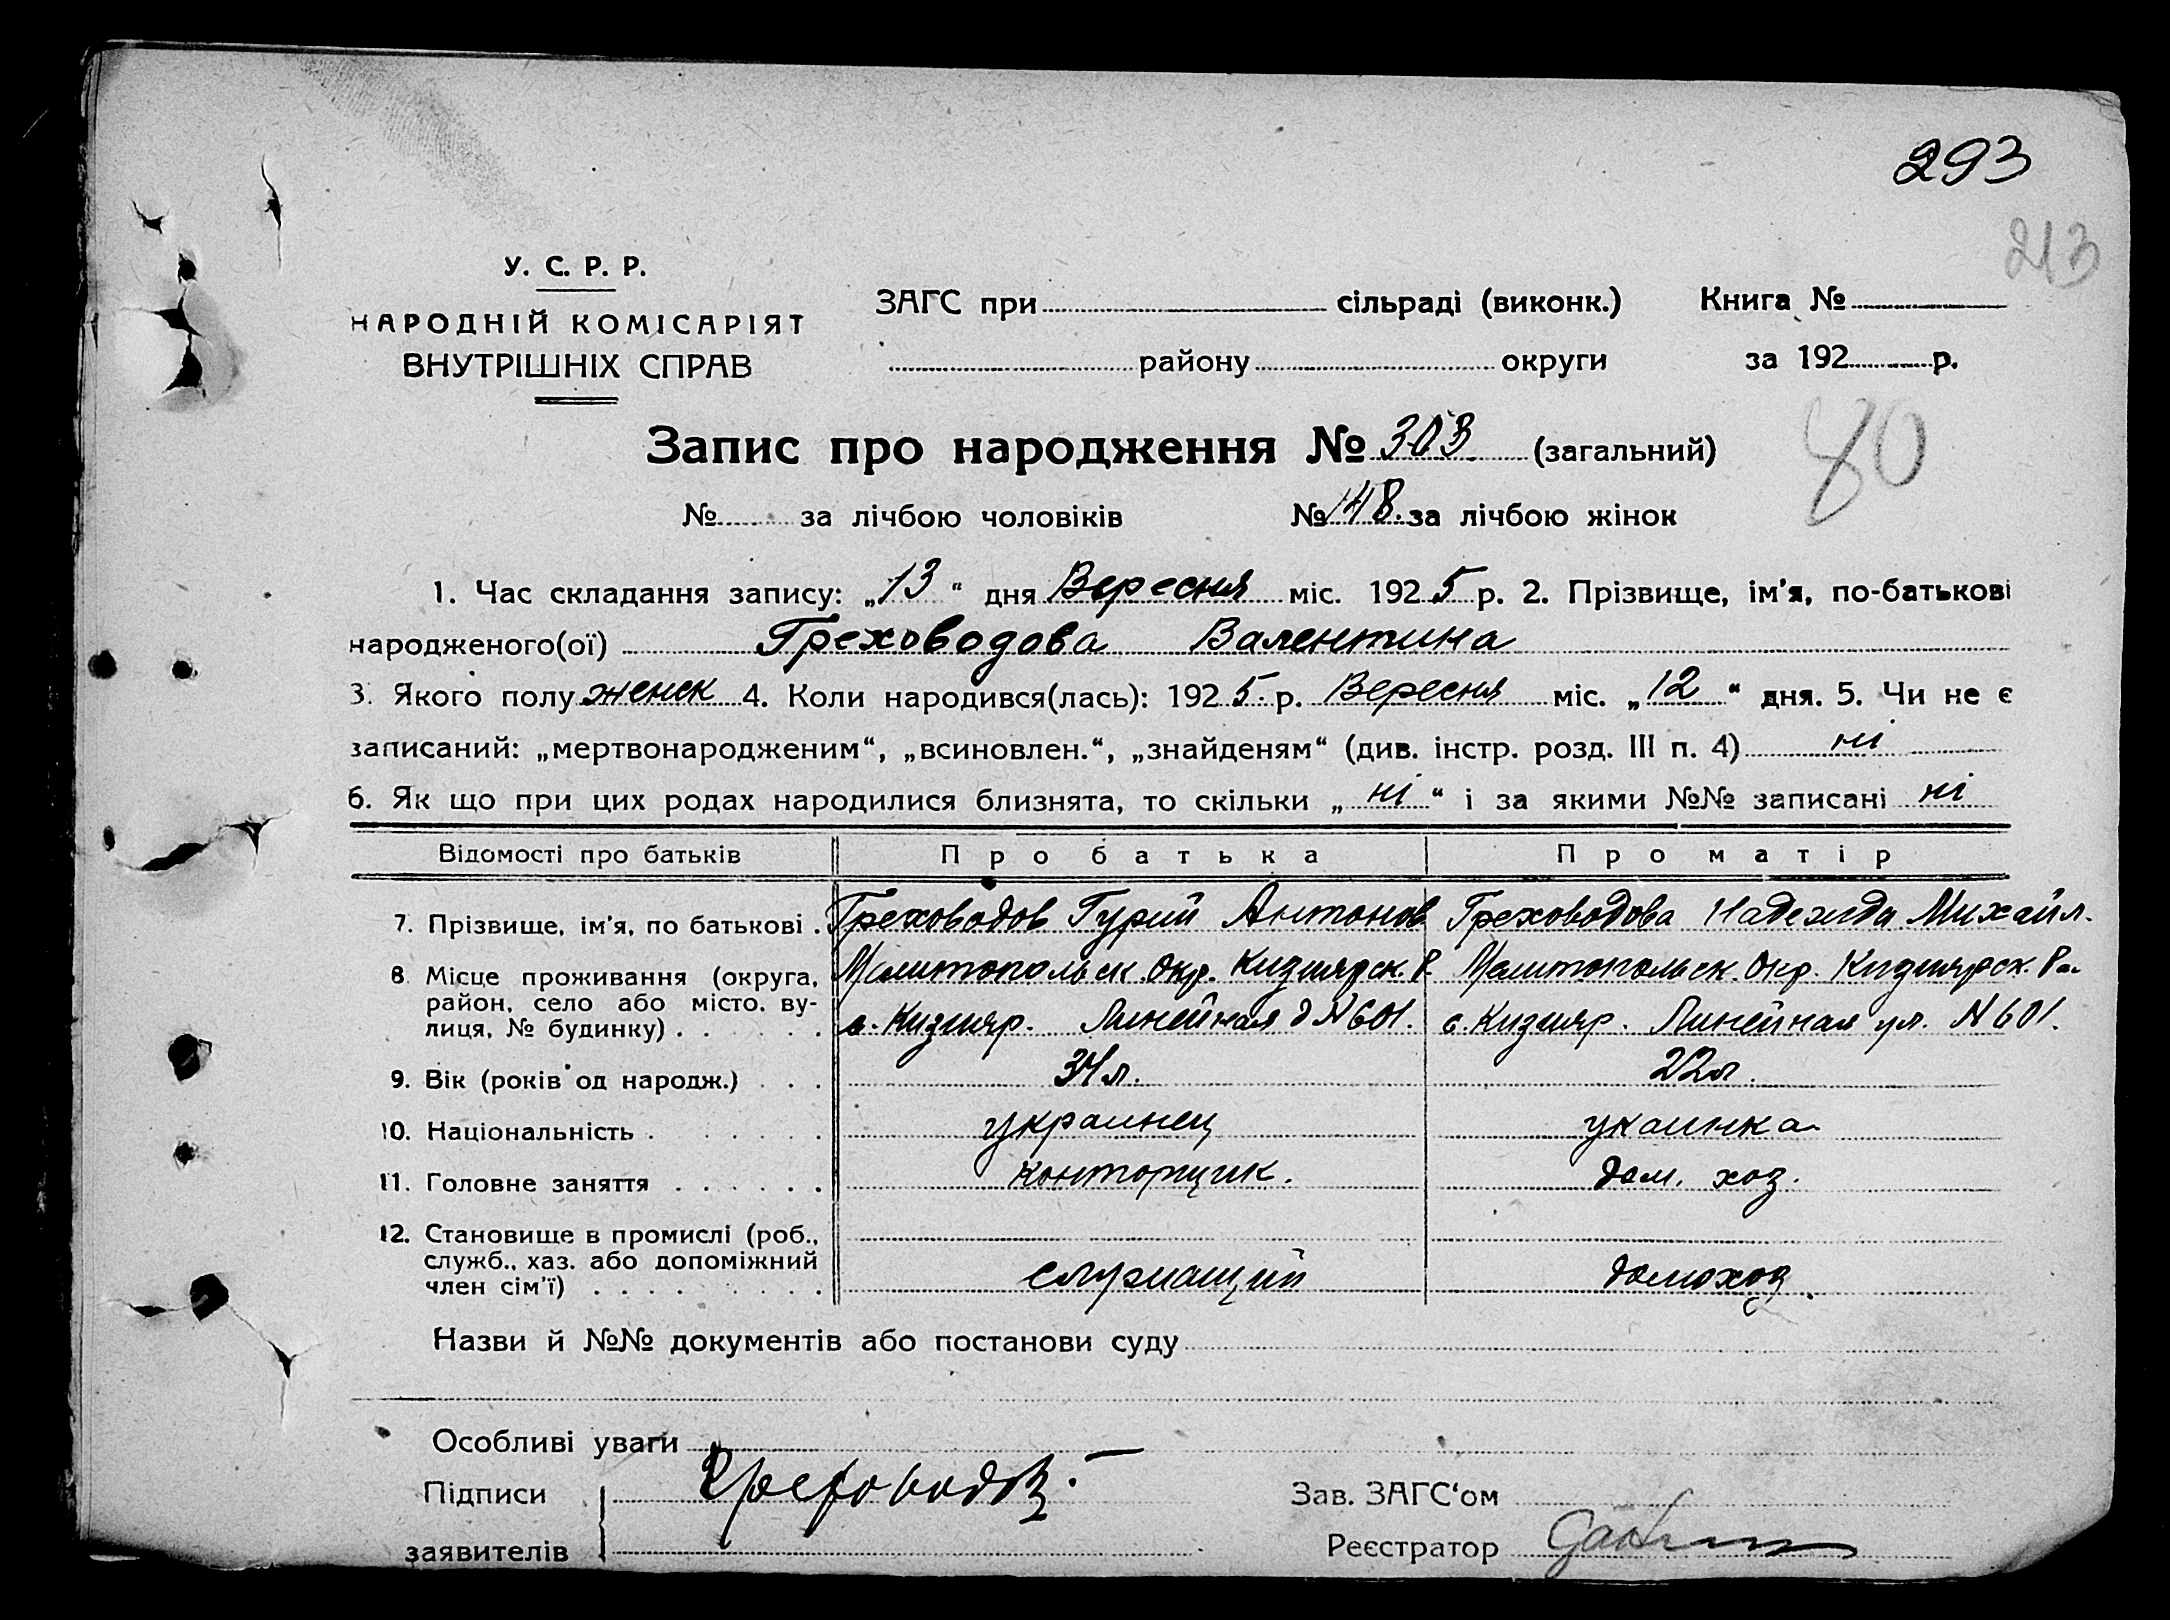 293
213
У. С. Р. Р.
НАРОДНІЙ КОМІСАРІЯТ
ВНУТРІШНІХ СПРАВ
ЗАГС при сільраді (виконк.) Книга №
району округи за 192 р.
80
Запис про народження № 303 (загальний)
№ за лічбою чоловіків № 148. за лічбою жінок
1. Час складання запису: „13“ дня Вересня міс. 1925 р. 2. Прізвище, ім'я, по-батькові
народженого(ої) Греховодова Валентина
3. Якого полу женск 4. Коли народився(лась): 1925. р. Вересня міс. „12“ дня. 5. Чи не є
записаний: „мертвонародженим“, „всиновлен.“, „знайденям“ (див. інстр. розд. III п. 4) ні
6. Як що при цих родах народилися близнята, то скільки „ні“ і за якими №№ записані ні
Відомості про батьків Про батька Про матір
7. Прізвище, ім'я, по батькові . Греховодов Гурий Антонов Греховодова Надежда Михайл.
8. Місце проживання (округа, Мелитопольск. Окр. Кизиярск. Р. Мелитопольск. Окр. Кизиярск. Ра.
район, село або місто, ву-
лиця, № будинку) . . . . . с. Кизияр. Линейная д N 601. с. Кизияр. Линейная ул. N 601.
9. Вік (років од народж.) . . . 34 л. 22 л.
10. Національність . . . . . . украинец укаинка
11. Головне заняття . . . . . . конторщик. дом. хоз.
12. Становище в промислі (роб.,
служб., хаз. або допоміжний
член сім'ї) . . . . . . . . служащий домохоз.
Назви й №№ документів або постанови суду
Особливі уваги
Підписи Греховодов Зав. ЗАГС'ом
заявителів Реєстратор